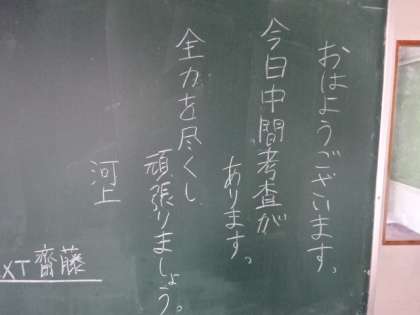 おはようございます。
今日中間考査が
あります。
全力を尽くし
頑張りましょう。
河上
XT 齋藤